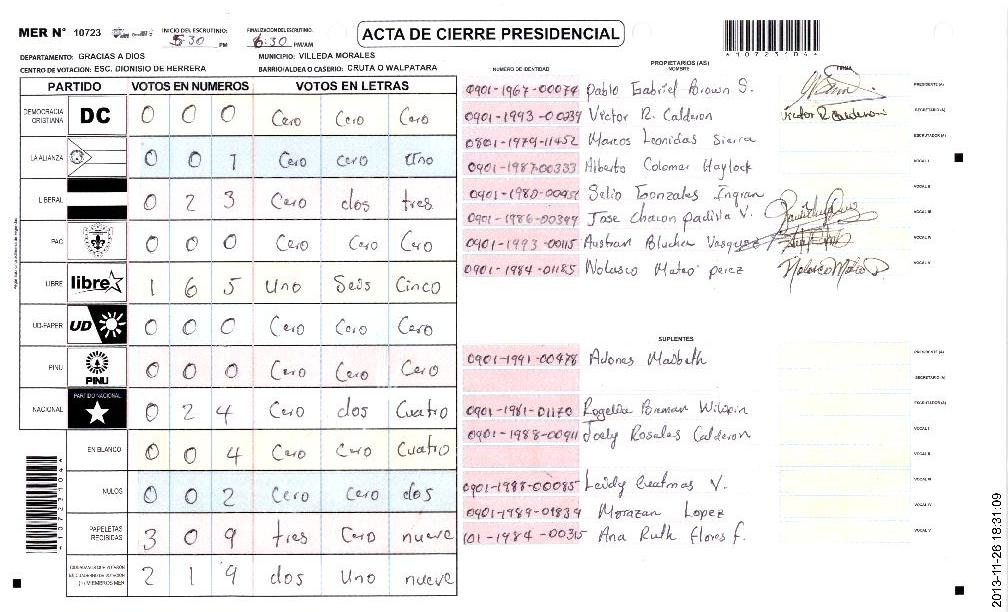 MER N° 10723 INICIO DEL ESCRUTINIO: 5:30 PM FINALIZACION DEL ESCRUTINIO: 6:30 PM/AM ACTA DE CIERRE PRESIDENCIAL
A107231044
DEPARTAMENTO: GRACIAS A DIOS MUNICIPIO: VILLEDA MORALES
CENTRO DE VOTACION: ESC. DIONISIO DE HERRERA BARRIO/ALDEA O CASERIO: CRUTA O WALPATARA
PARTIDO VOTOS EN NUMEROS VOTOS EN LETRAS
DEMOCRACIA CRISTIANA DC 0 0 0 Cero Cero Cero
LA ALIANZA 0 0 1 Cero Cero Uno
LIBERAL 0 2 3 Cero dos tres
PAC 0 0 0 Cero Cero Cero
LIBRE libre 1 6 5 Uno Seis Cinco
UD-FAPER UD 0 0 0 Cero Cero Cero
PINU PINU 0 0 0 Cero Cero Cero
NACIONAL PARTIDO NACIONAL 0 2 4 Cero dos Cuatro
EN BLANCO 0 0 4 Cero Cero Cuatro
NULOS 0 0 2 Cero Cero dos
PAPELETAS RECIBIDAS 3 0 9 tres Cero nueve
CIUDADANOS QUE VOTARON EN CUADERNO DE VOTACION (+) MIEMBROS MER 2 1 9 dos Uno nueve
A107231044
PROPIETARIOS (AS)
NUMERO DE IDENTIDAD NOMBRE FIRMA
0901-1967-00074 Pablo Gabriel Brown S. PRESIDENTE (A)
0901-1993-00339 Victor R. Calderon Victor R Calderon SECRETARIO (A)
0801-1979-11452 Marcos Leonidas Sierra ESCRUTADOR (A)
0901-1987-00333 Alberto Colomer Haylock VOCAL I
0901-1980-00451 Selio Gonzales Ingran VOCAL II
0901-1986-00399 Jose chacon padilla V. VOCAL III
0901-1993-00115 Austran Blucha Vasquez VOCAL IV
0901-1984-01185 Nolasco Mateo perez VOCAL V
SUPLENTES
0901-1991-00478 Adones Maibeth PRESIDENTE (A)
SECRETARIO (A)
0901-1981-01170 Rogelia Wilspin ESCRUTADOR (A)
0901-1988-00911 Joely Rosales Calderon VOCAL I
VOCAL II
0901-1988-00085 Leidy V. VOCAL III
0901-1989-01839 Morazan Lopez VOCAL IV
101-1984-00315 Ana Ruth Flores f. VOCAL V
2013-11-26 18:31:09